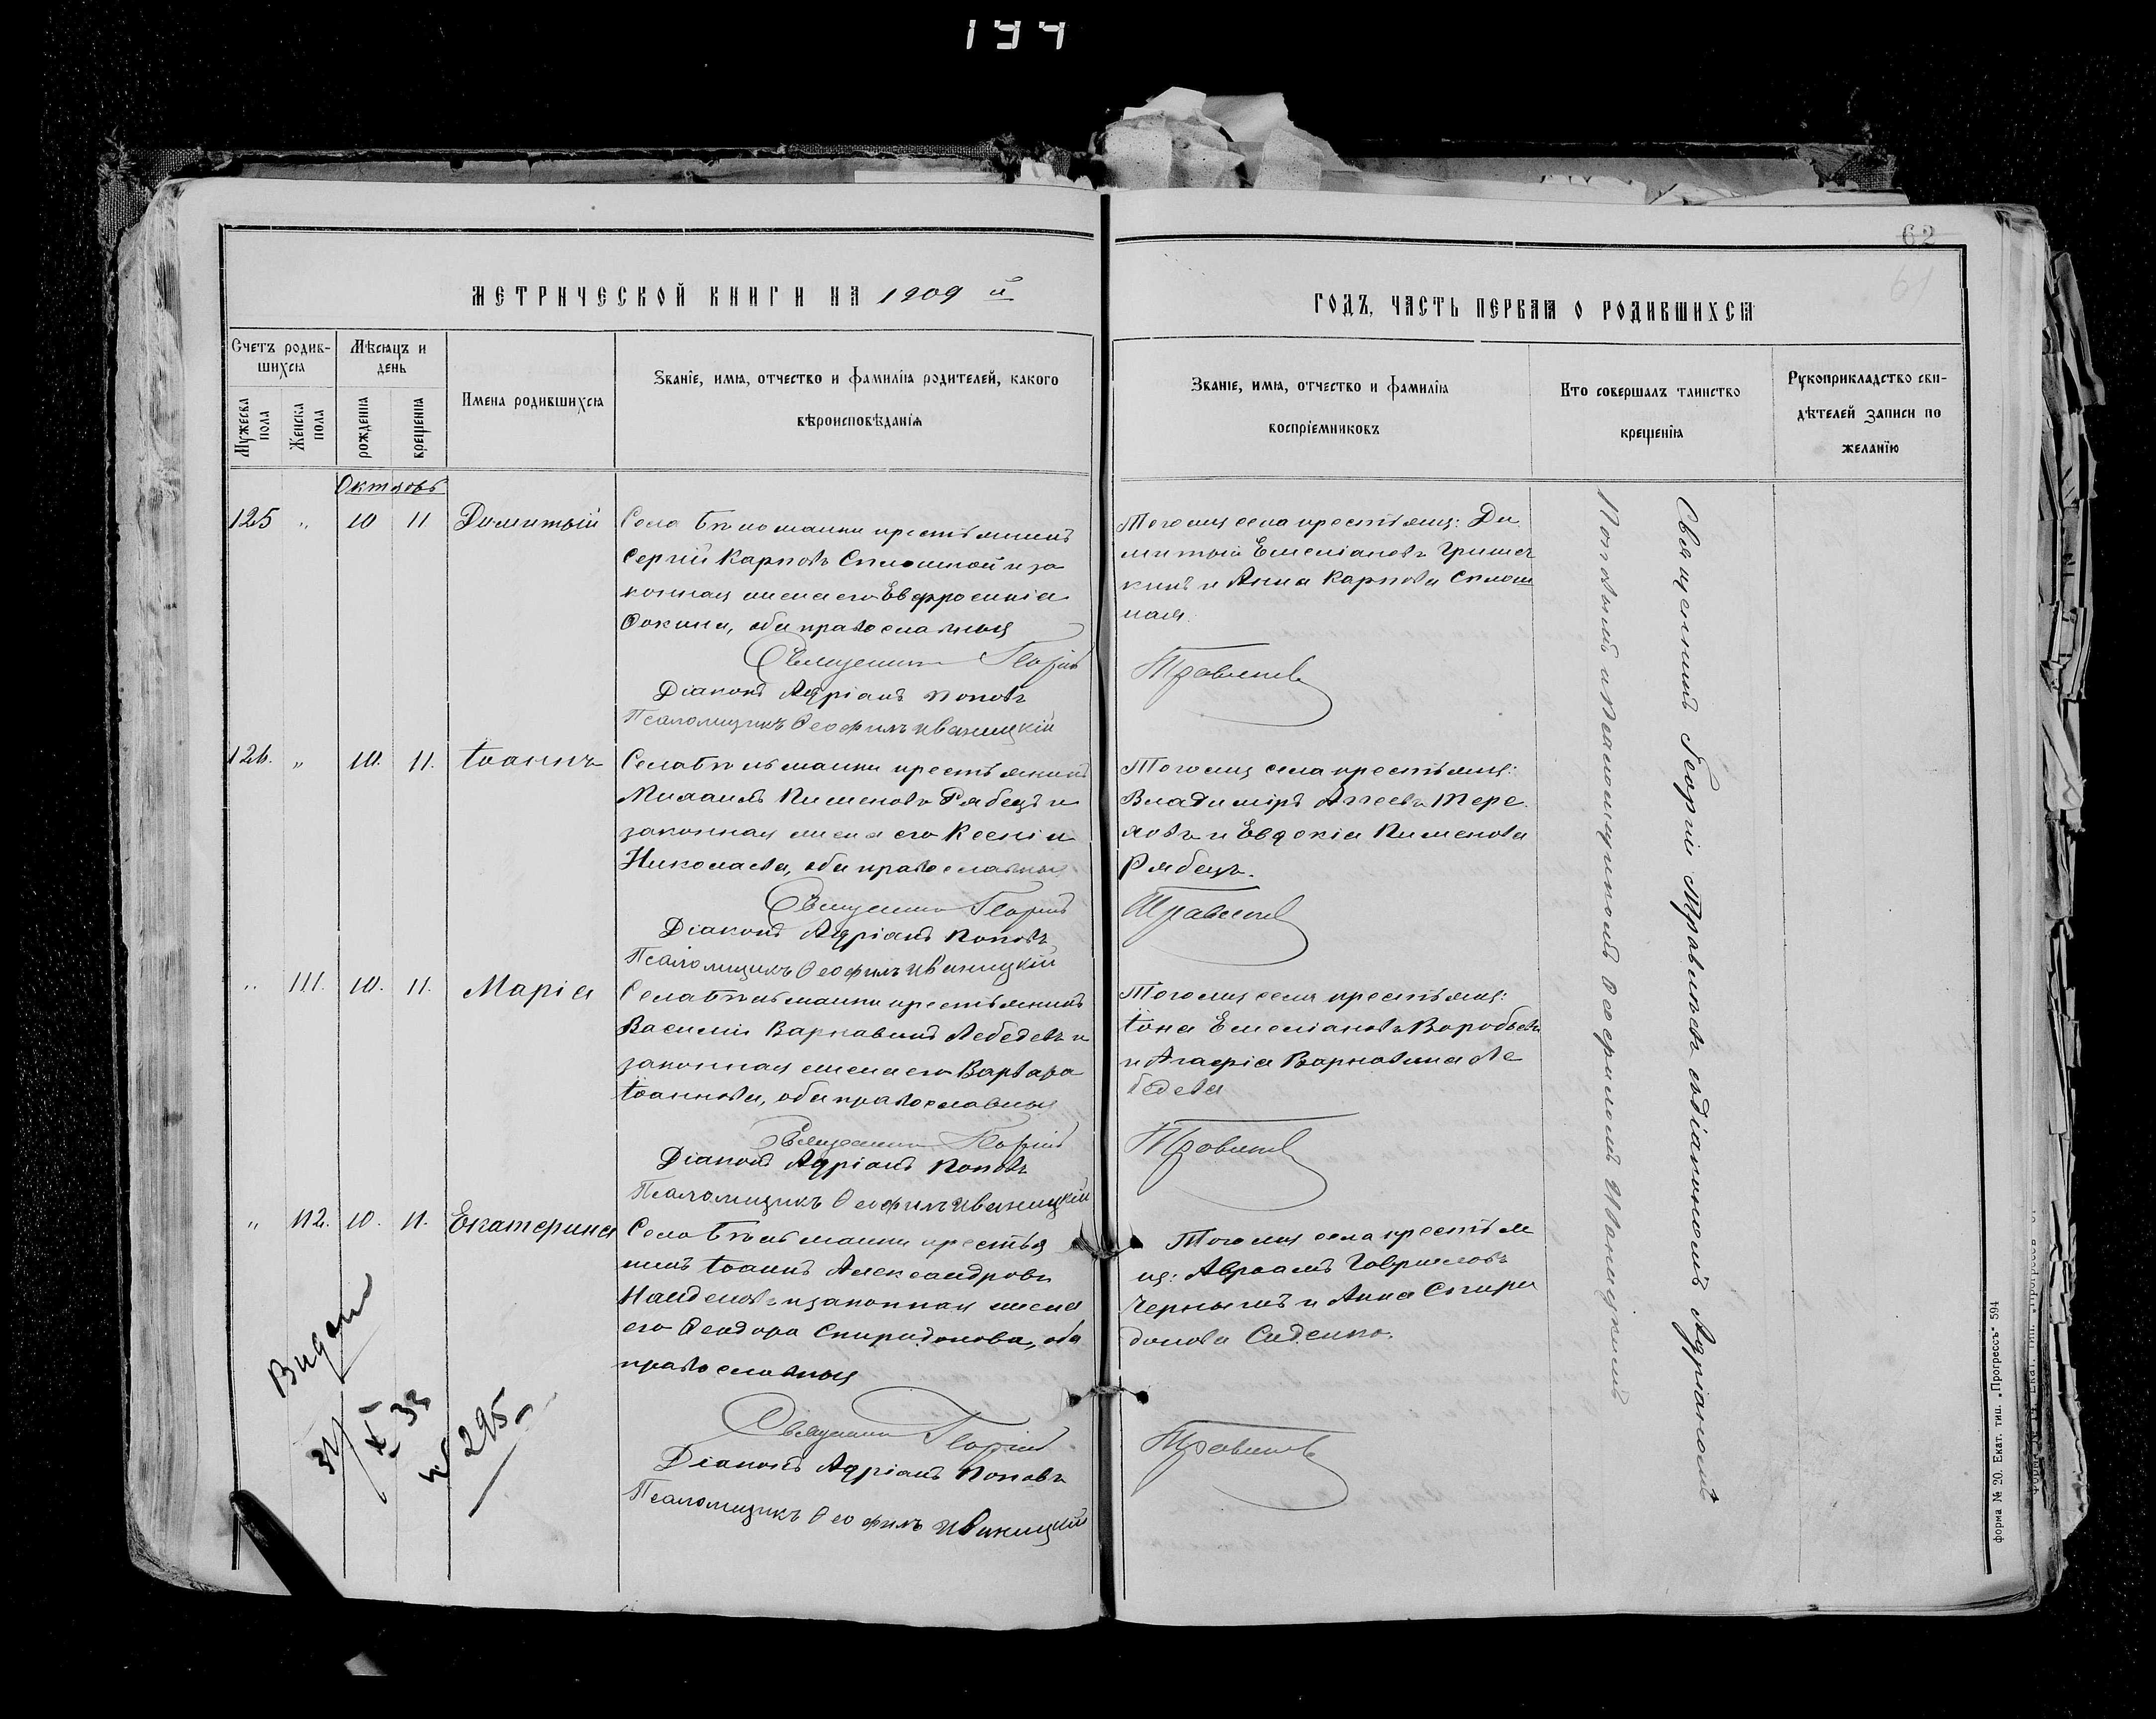 194
62
61
МЕТРИЧЕСКОЙ КНИГИ НА 1909 й
ГОДЪ, ЧАСТЬ ПЕРВАЯ О РОДИВШИХСЯ
Счетъ родив-
шихся
Мужеска пола
Женска пола
Мѣсяцъ и
день
рожденія
крещенія
Имена родившихся
Званіе, имя, отчество и фамилія родителей, какого
вѣроисповѣданія
Званіе, имя, отчество и фамилія
воспріемниковъ
Кто совершалъ таинство
крещенія
Рукоприкладство сви-
дѣтелей записи по
желанію
Октябрь
125 " 10 11 Димитрій
Села крестьянинъ
Сергій Карповъ Сплошной и за
конная жена его Евфросинія
Фокина, оба православныя
Священникъ Георгій
Діаконъ Адріанъ Поповъ
Псаломщикъ Ѳеофилъ Иваницкій
Того же села крестьяне: Ди
митрій Емеліановъ
и Анна Карпова Сплош
ная.
Травлевъ
126. " 10. 11. Іоаннъ
Села крестьянинъ
Михаилъ Пименовъ Рябецъ и
законная жена его Ксенія
Николаева, оба православныя
Священникъ Георгій
Діаконъ Адріанъ Поповъ
Псаломщикъ Ѳеофилъ Иваницкій
Того же села крестьяне:
Владиміръ Аггеевъ Тере
ховъ и Евдокія Пименова
Рябецъ.
Травлевъ
" 111. 10. 11. Марія
Села крестьянинъ
Василій Варнавинъ Лебедевъ и
законная жена его Варвара
Іоаннова, оба православныя
Священникъ Георгій
Діаконъ Адріанъ Поповъ
Псаломщикъ Ѳеофилъ Иваницкій
Того же села крестьяне:
Іона Емеліановъ Воробьевъ
и Агафія Варнавина Ле
бедева
Травлевъ
" 112. 10. 11. Екатерина
Села крестья
нинъ Іоаннъ Александровъ
Найденовъ и законная жена
его Ѳеодора Спиридонова, оба
православныя
Священникъ Георгій
Діаконъ Адріанъ Поповъ
Псаломщикъ Ѳеофилъ Иваницкій
Того же села крестьян
е: Авраамъ Гавриловъ
Чернышъ и Анна Спири
донова Сиденко.
Травлевъ
Видано
31/X 33
№ 295
Священникъ Георгій Травлевъ съ діакономъ Адріаномъ
Поповымъ и псаломщикомъ Ѳеофиломъ Иваницкимъ
форма № 20. Екат. тип. „Прогрессъ" 594